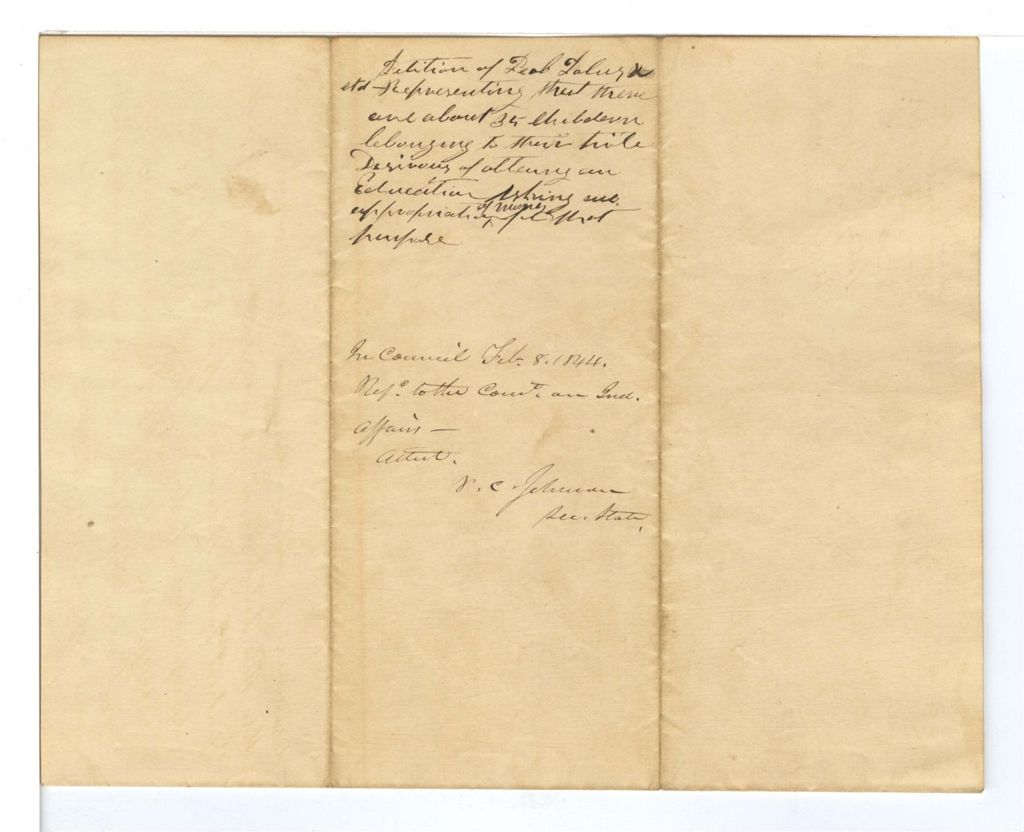 Petition of Peol Tolus &
etd - Representing that there
are about 35 Childern
belonging to their tribe
Desirous of attening an
Education Asking an
appropriation of money for that
purpose
In Council Feb. 8. 1844.
Refd. to the Comte. on Ind.
Affairs —
Attest.
P. C. Johnson
Sec. State.